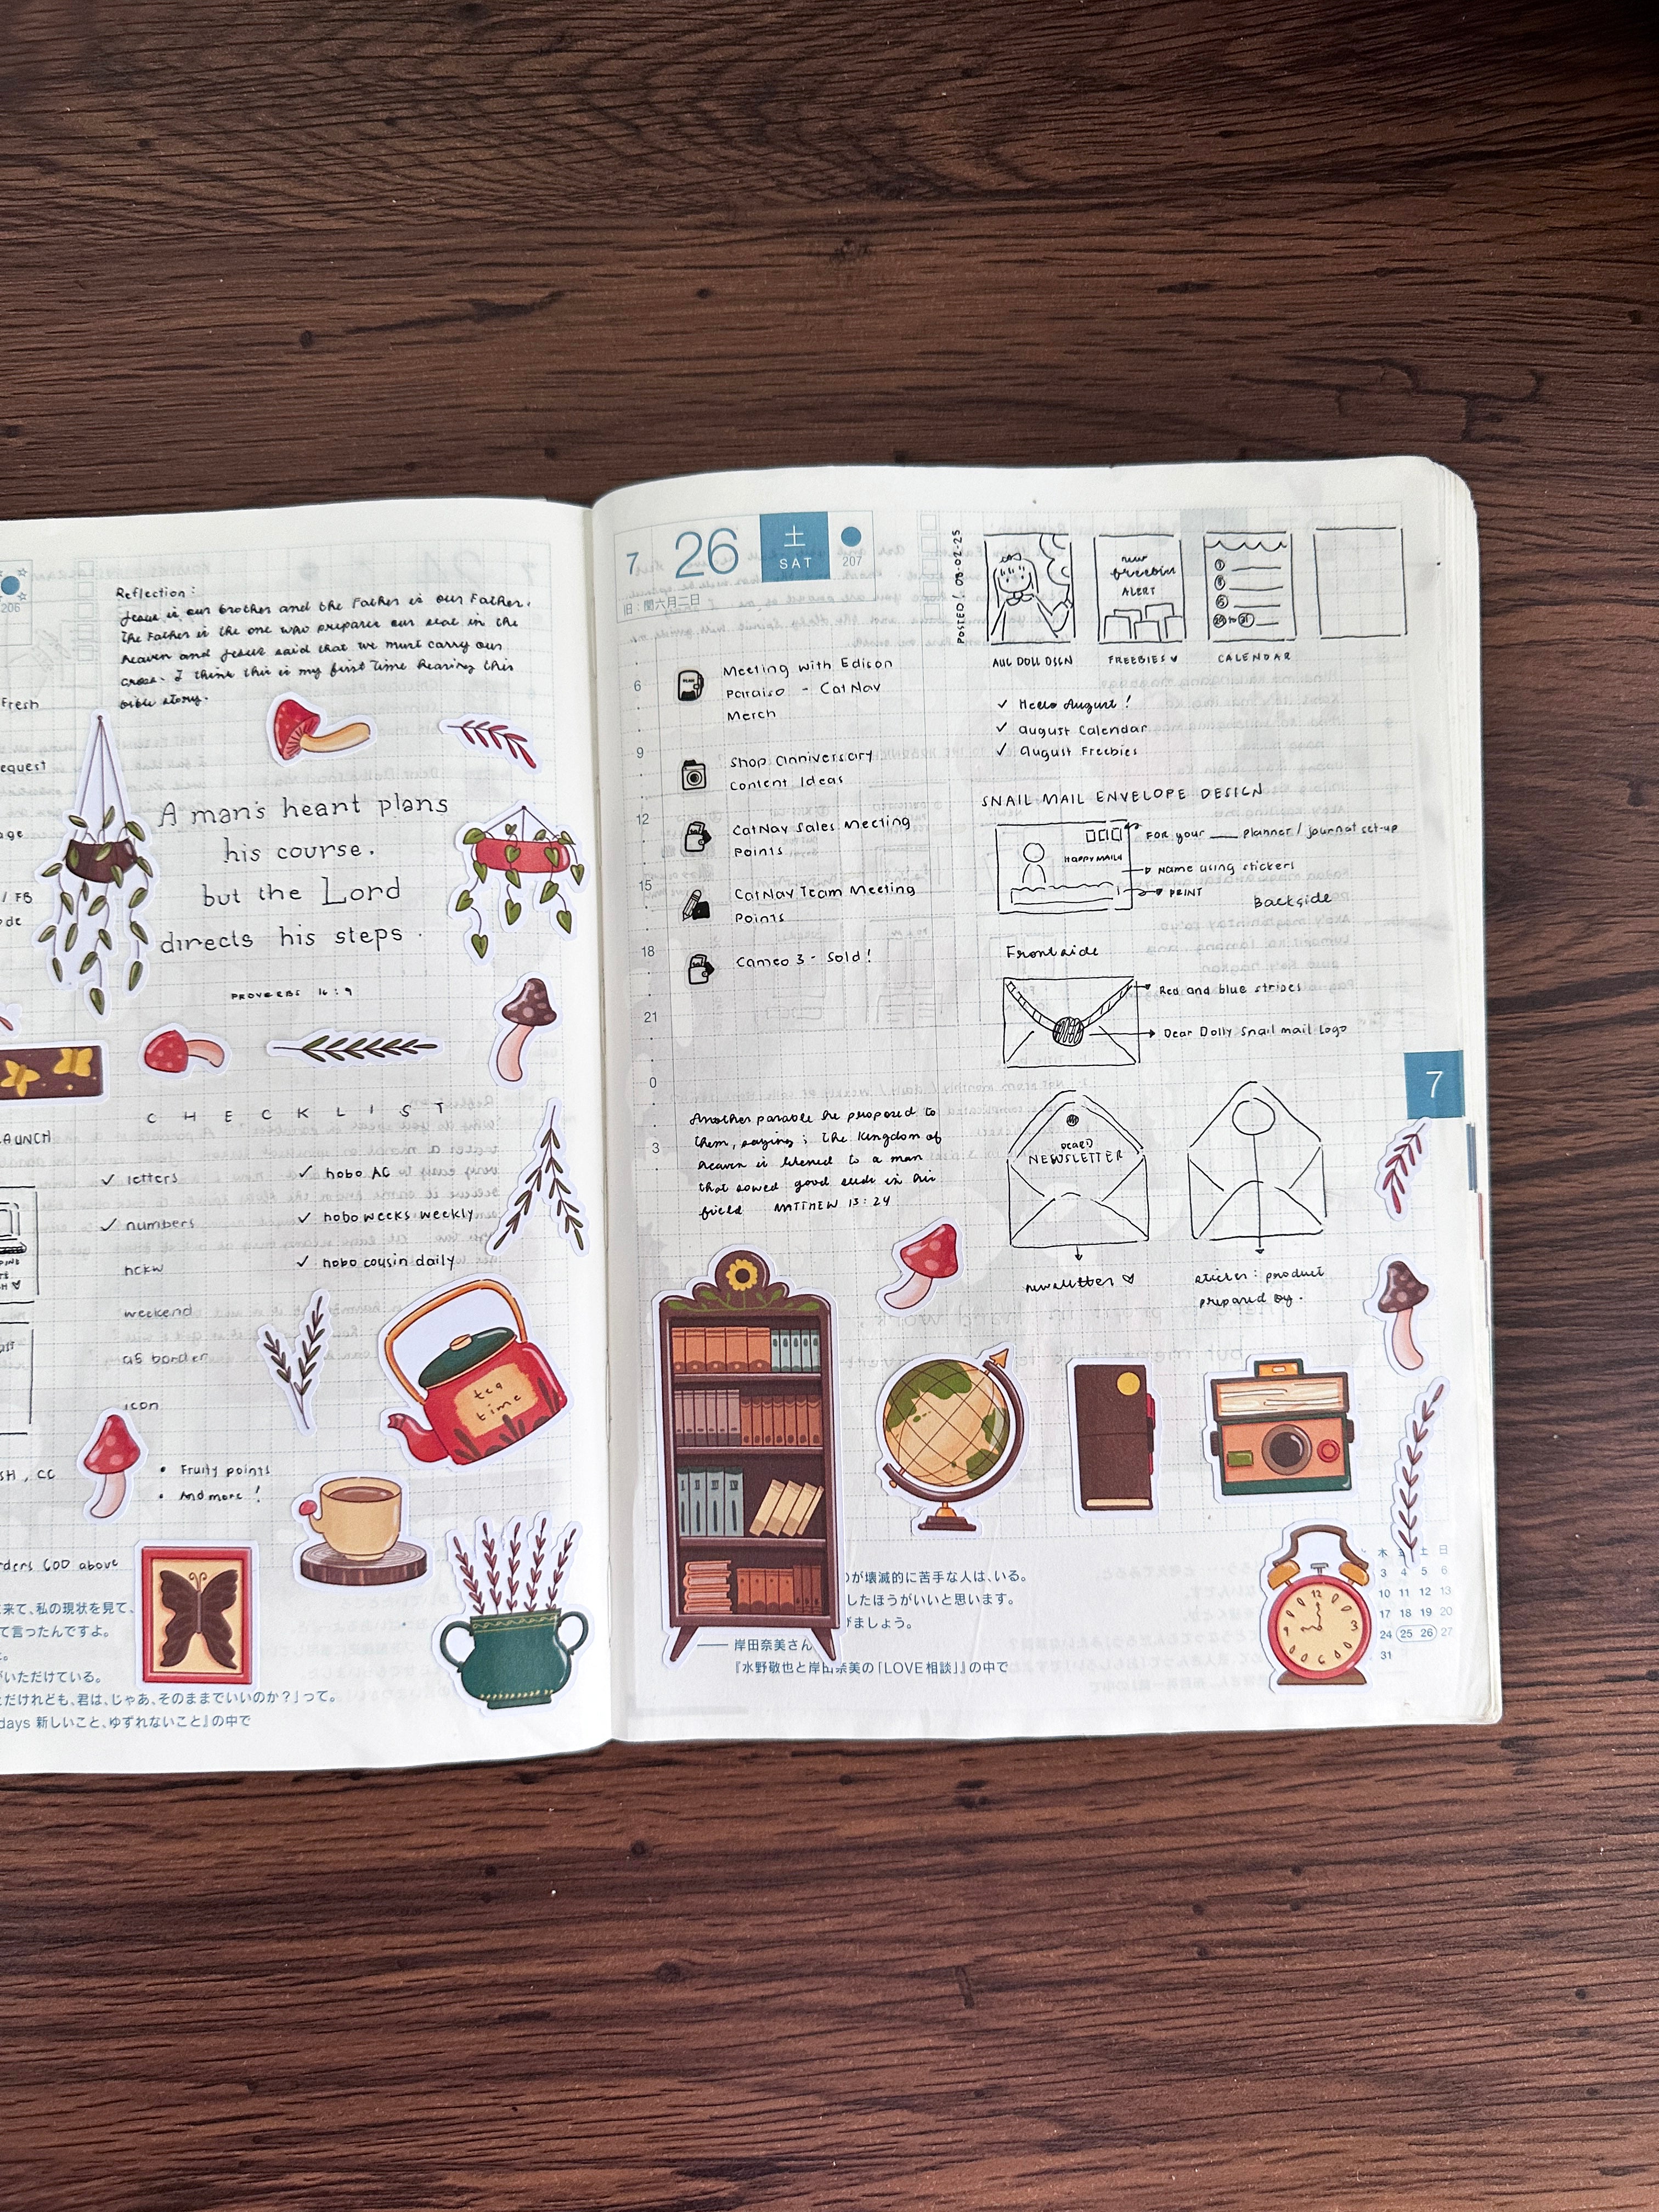 206
Reflection:
Jesus is our brother and the Father is our Father.
The Father is the one who prepares our seat in the
heaven and Jesus said that we must carry our
cross. I think this is my first time hearing this
bible story.
Fresh
equest
A man's heart plans
his course.
but the Lord
directs his steps.
PROVERBS 16:9
/ FB
CHECKLIST
AUNCH
✓ letters
✓ numbers
hckw
weekend
a5 border
icon
✓ hobo AC
✓ hobo weeks weekly
✓ hobo cousin daily
tea
time
SH, CC
• Fruity points
• And more!
rders 600 above
来て、私の現状を見て、
て言ったんですよ。
がいただけている。
だけれども、君は、じゃあ、そのままでいいのか?」って。
days 新しいこと、ゆずれないこと』の中で
7 26 土 SAT 207
旧:閏六月二日
6
9
12
15
18
21
0
3
Meeting with Edison
Paraiso - CatNav
Merch
Shop Anniversary
Content Ideas
CatNav Sales Meeting
Points
CatNav Team Meeting
Points
Cameo 3 - Sold!
Another parable he proposed to
them, saying; The Kingdom of
heaven is likened to a man
that sowed good seeds in his
field MATTHEW 13:24
POSTED / 08-02-25
new
freebies
ALERT
AUG DOLL DSGN
FREEBIES
CALENDAR
✓ Hello August!
✓ August Calendar
✓ August Freebies
SNAIL MAIL ENVELOPE DESIGN
HAPPY MAIL
FOR your ___ planner / journal set-up
Name using stickers
PRINT
Backside
Frontside
Red and blue stripes
Dear Dolly Snail mail Logo
NEWSLETTER
newsletter ♡
sticker: product
prepared by.
7
12
3
6
9
が壊滅的に苦手な人は、いる。
したほうがいいと思います。
びましょう。
—— 岸田奈美さん
『水野敬也と岸田奈美の「LOVE相談」』の中で
木 土 日
3 4 5 6
10 11 12 13
17 18 19 20
24 25 26 27
31